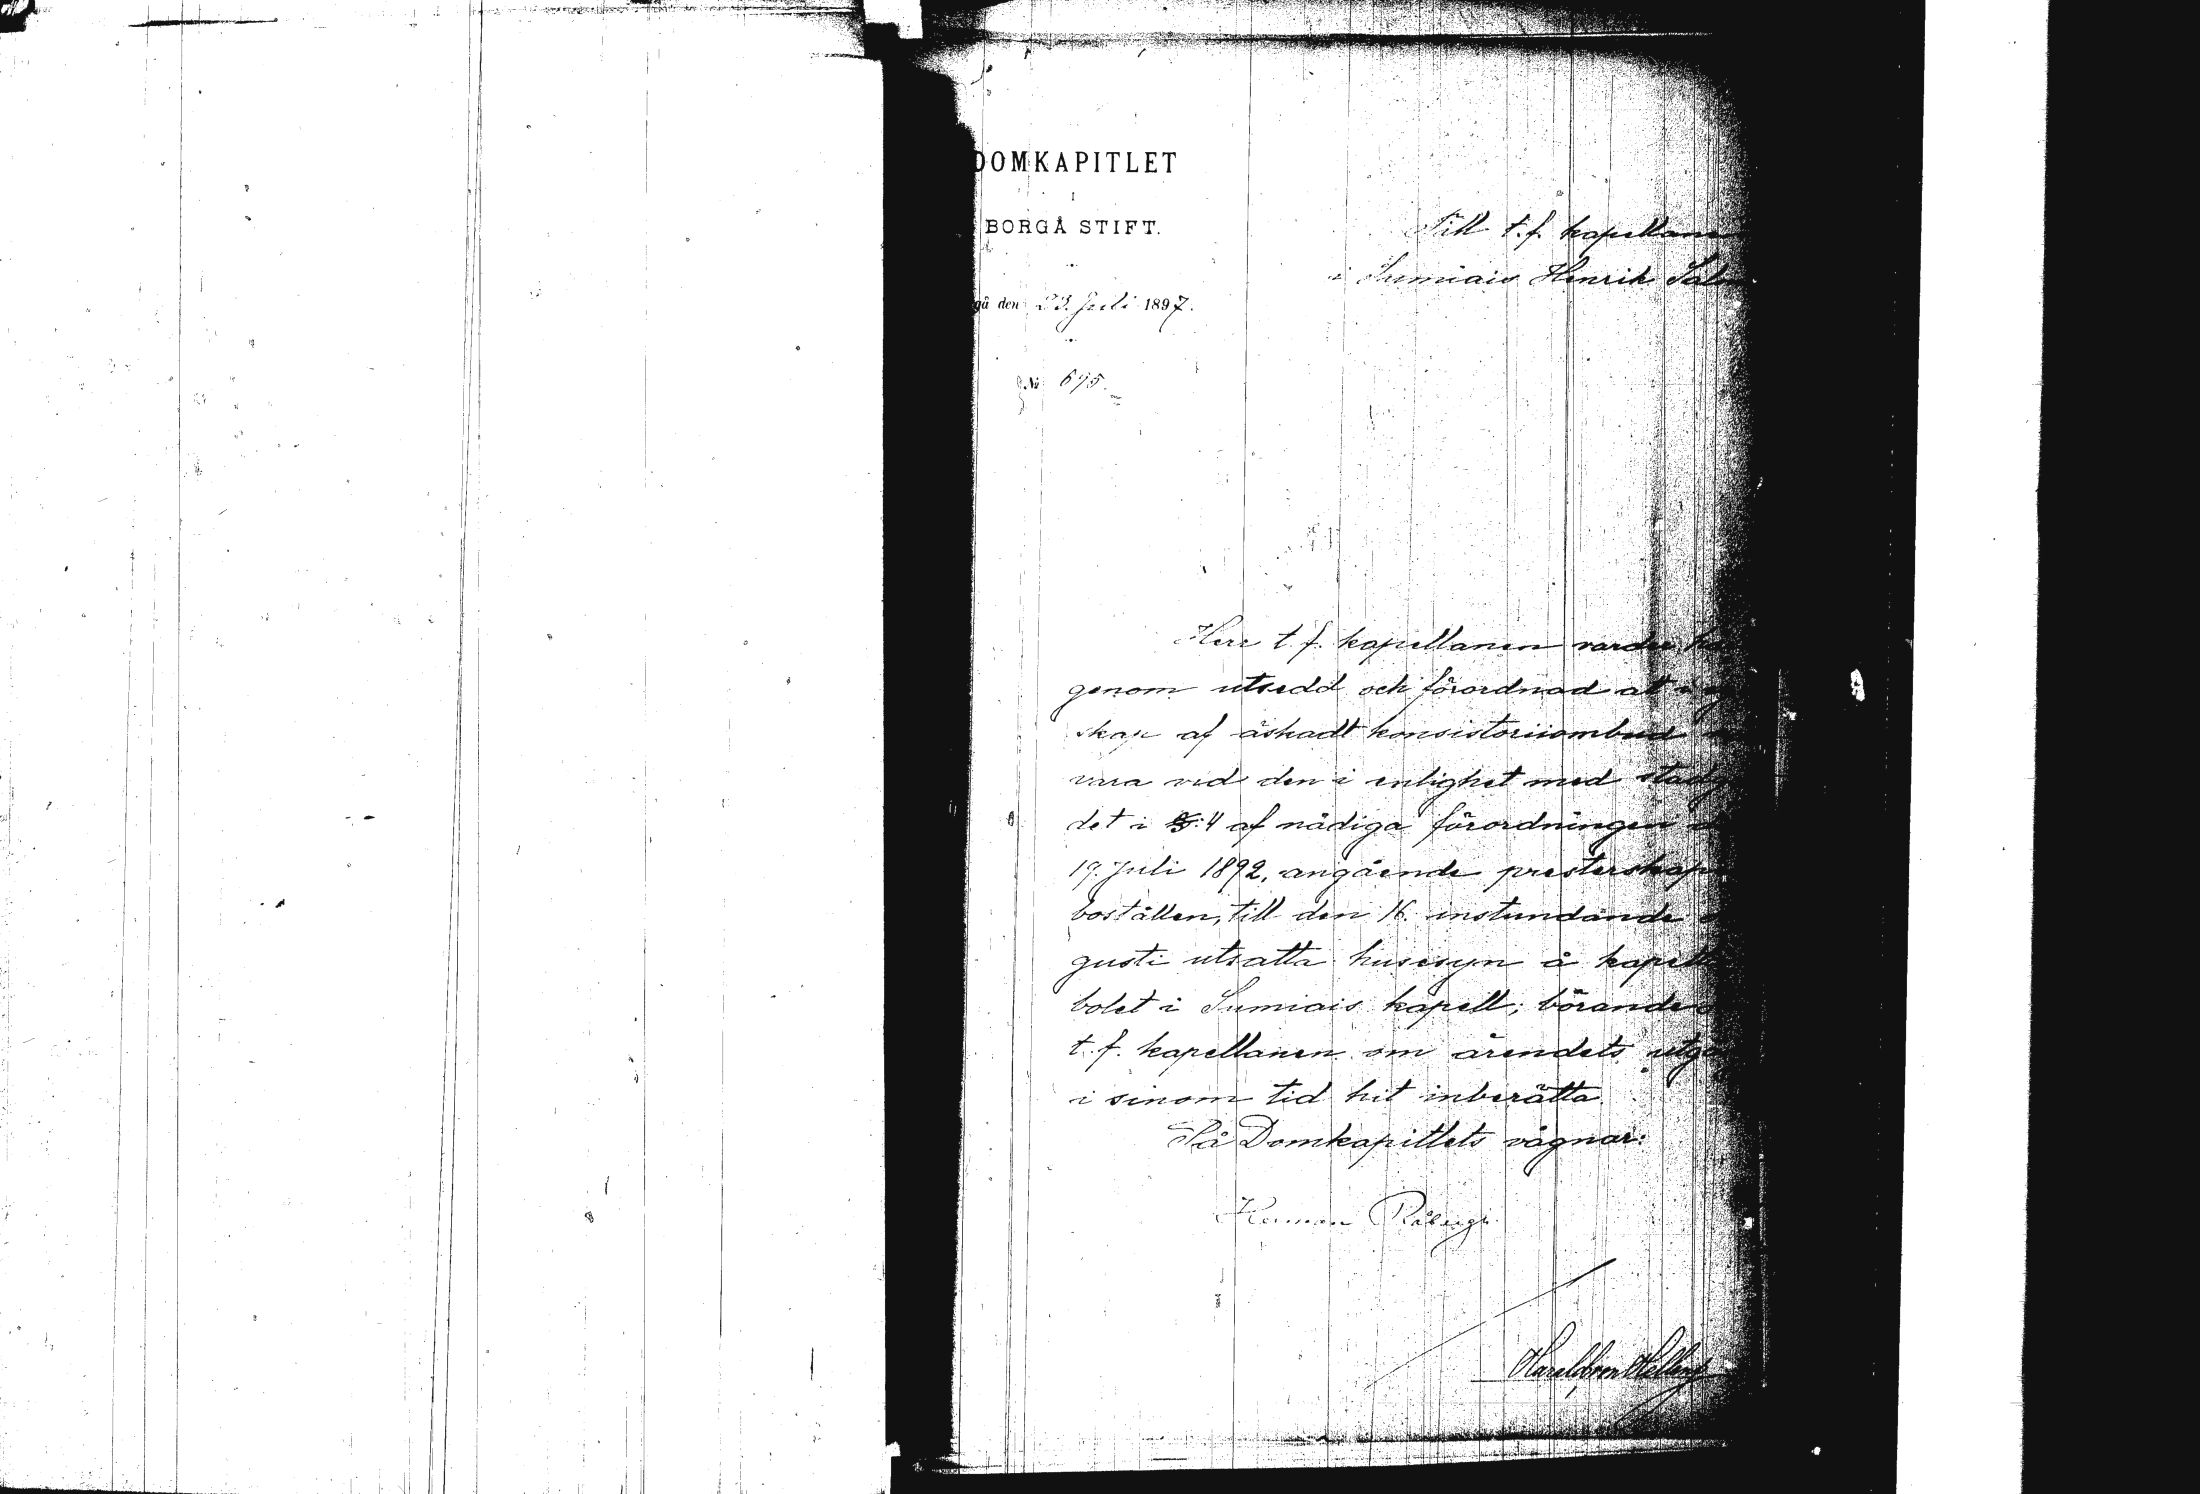 DOMKAPITLET
I
BORGÅ STIFT.
gå den 23. Juli 1897.
№ 695.
Till t.f. kapellane
i Sumiais Henrik Salo
Herr t.f. kapellanen varder
genom utsedd och förordnad att i
skap af äskadt konsistoriiombud
vara vid den i enlighet med stadg
det i §:4 af nådiga förordningen
19. Juli 1892, angående presterskap
boställen, till den 16. instundande
gusti utsatta husesyn å kapell
bolet i Sumiais kapell; börande
t.f. kapellanen om ärendets utgå
i sinom tid hit inberätta.
På Domkapitlets vägnar:
Herman Råbergh.